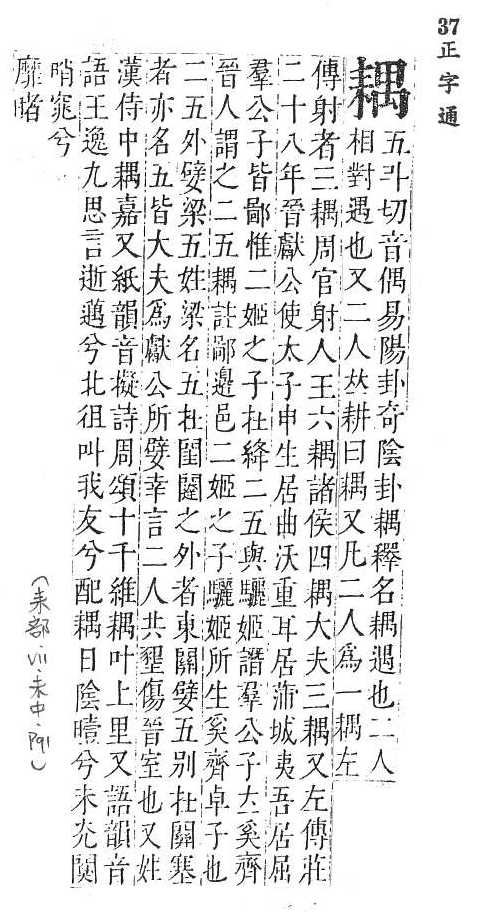 37 正字通
耦
五斗切音偶易陽卦奇陰卦耦釋名耦遇也二人
相對遇也又二人𠀤耕曰耦又凡二人爲一耦左
傳射者三耦周官射人王六耦諸侯四耦大夫三耦又左傳莊
二十八年晉獻公使太子申生居曲沃重耳居蒲城夷吾居屈
羣公子皆鄙惟二姬之子在絳二五與驪姬譖羣公子立奚齊
晉人謂之二五耦註鄙邊邑二姬之子驪姬所生奚齊卓子也
二五外嬖梁五姓梁名五在閨闥之外者東關嬖五別在關塞
者亦名五皆大夫爲獻公所嬖幸言二人共墾傷晉室也又姓
漢侍中耦嘉又紙韻音擬詩周頌十千維耦叶上里又語韻音
語王逸九思言逝邁兮北徂叫我友兮配耦日陰曀兮未光闃
睄窕兮
靡睹
(耒部·ⅶ·未中·P91)